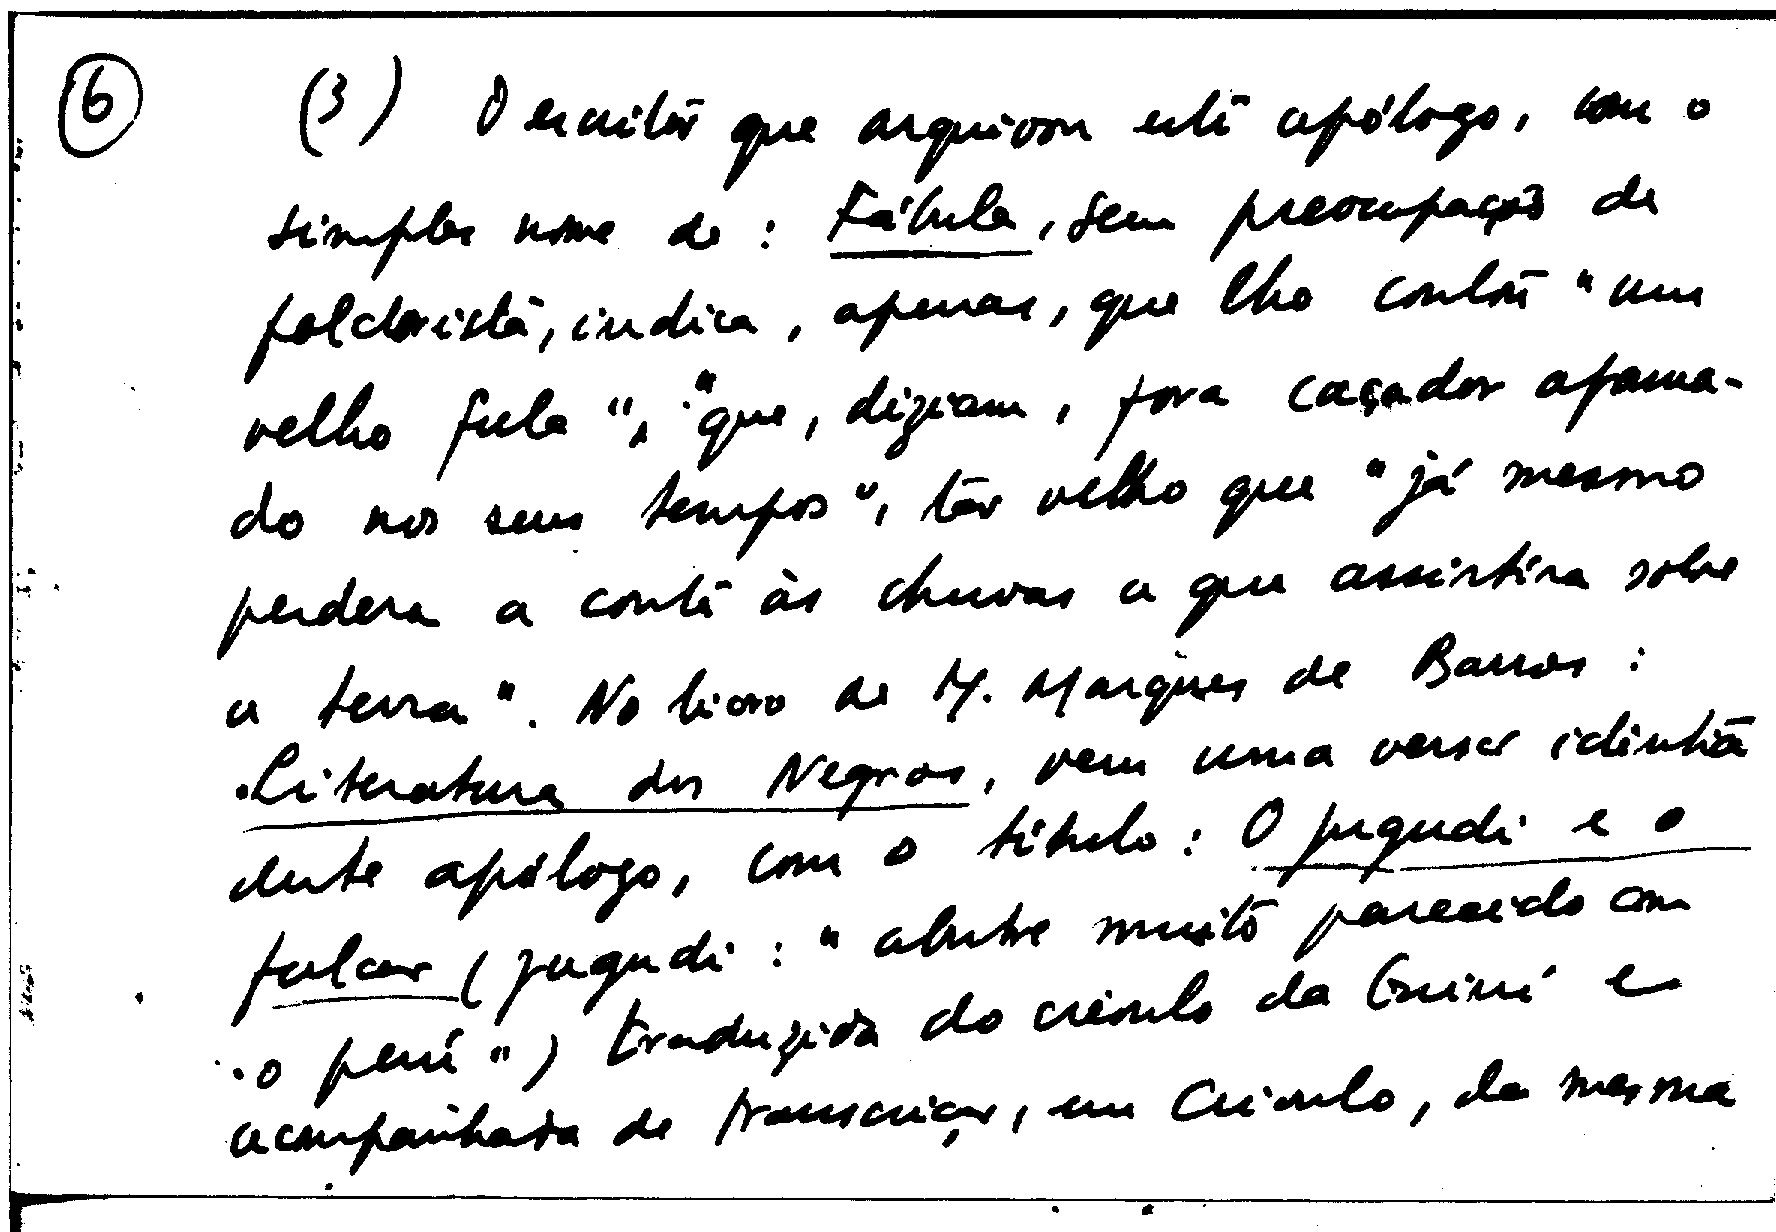 (6) (3) O escritor que arquivou este apólogo, com o
simples nome de : Fábula, sem preocupação de
folclorista, indica, apenas, que lho contou "um
velho fula", "que, diziam, fora caçador afama-
do nos seus tempos", tão velho que "já mesmo
perdera a conta às chuvas a que assistira sobre
a terra". No livro de M. Marques de Barros :
Literatura dos Negros, vem uma versão idêntica
deste apólogo, com o título : O jugudi e o
falcão (jugudi : "abutre muito parecido com
o perú") traduzida do crioulo da Guiné e
acompanhada de transcrição, em Crioulo, da mesma